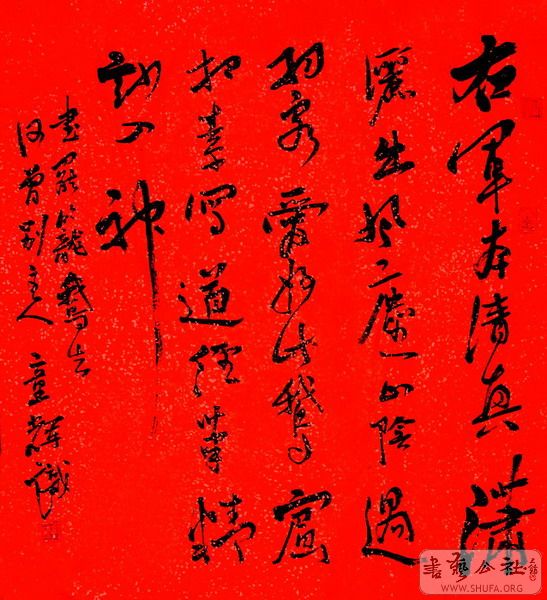 右軍本清真瀟
灑出風塵山陰過
羽客愛好此鵝賓
掃素寫道經筆精
妙入神
書罷籠鵝去
何曾別主人 童輝識
書藝公社
WWW.SHUFA.ORG